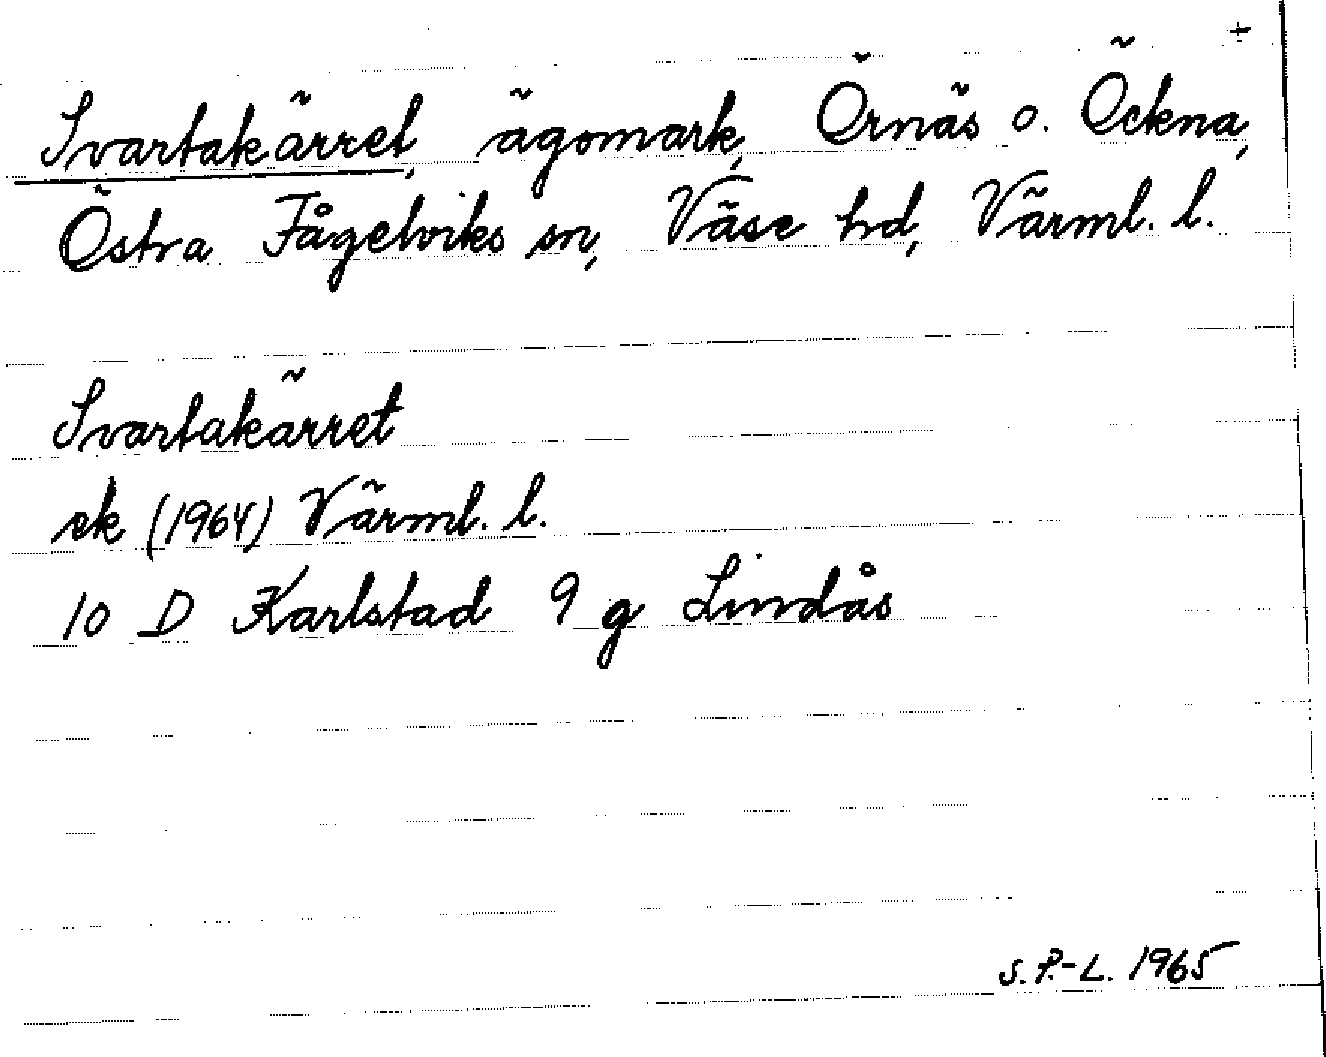 +
Svartakärret, ägomark, Örnäs o. Öckna,
Östra Fågelviks sn, Väse hd, Värml. l.
Svartakärret
ek (1964) Värml. l.
10 D Karlstad 9 g Lindås
S. P.-L. 1965